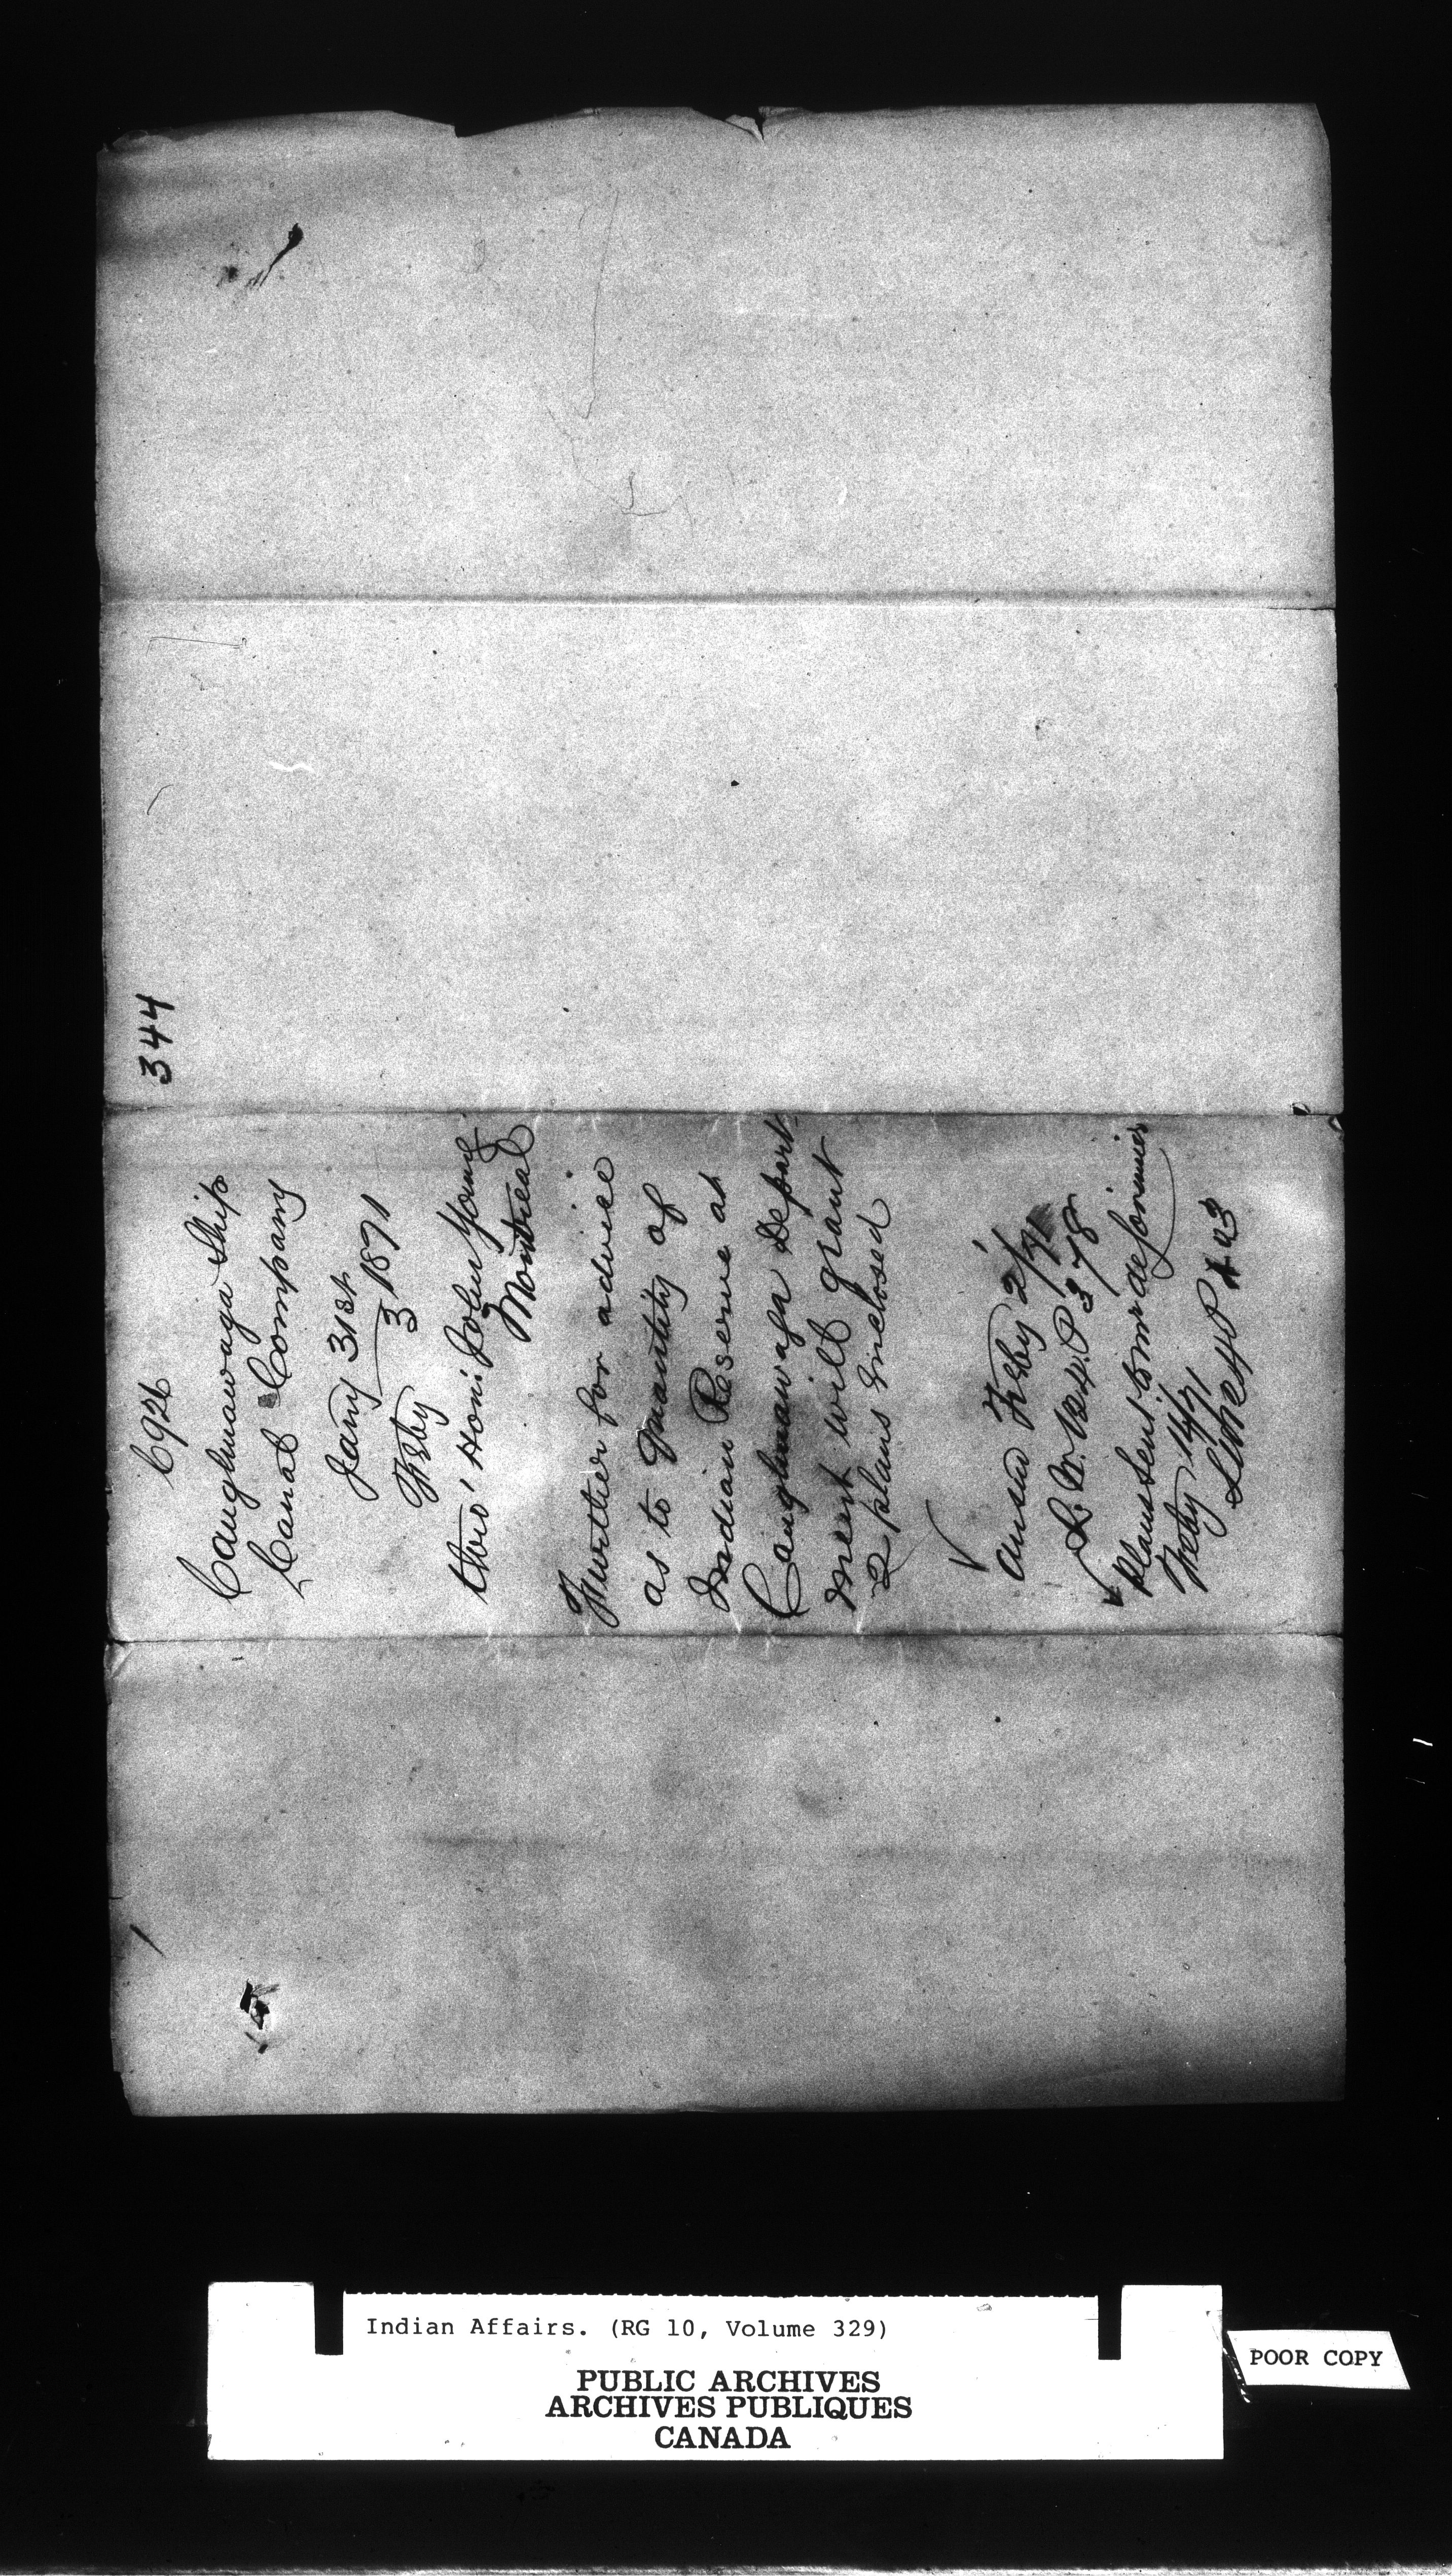 344
C926
Caughnawaga Ship
Canal Company
Jany 31st
Feby 3 1871
thro' Hon: John Young
Montreal
Further for advice
as to quantity of
Indian Reserve at
Caughnawaga Depart
ment will grant
2 plans Enclosed
Answd Feby 2/71
L. B. No 4. P 378
plans sent to mr delorimier
Feby 14/71
P 403
Indian Affairs. (RG 10, Volume 329)
PUBLIC ARCHIVES
ARCHIVES PUBLIQUES
CANADA
POOR COPY